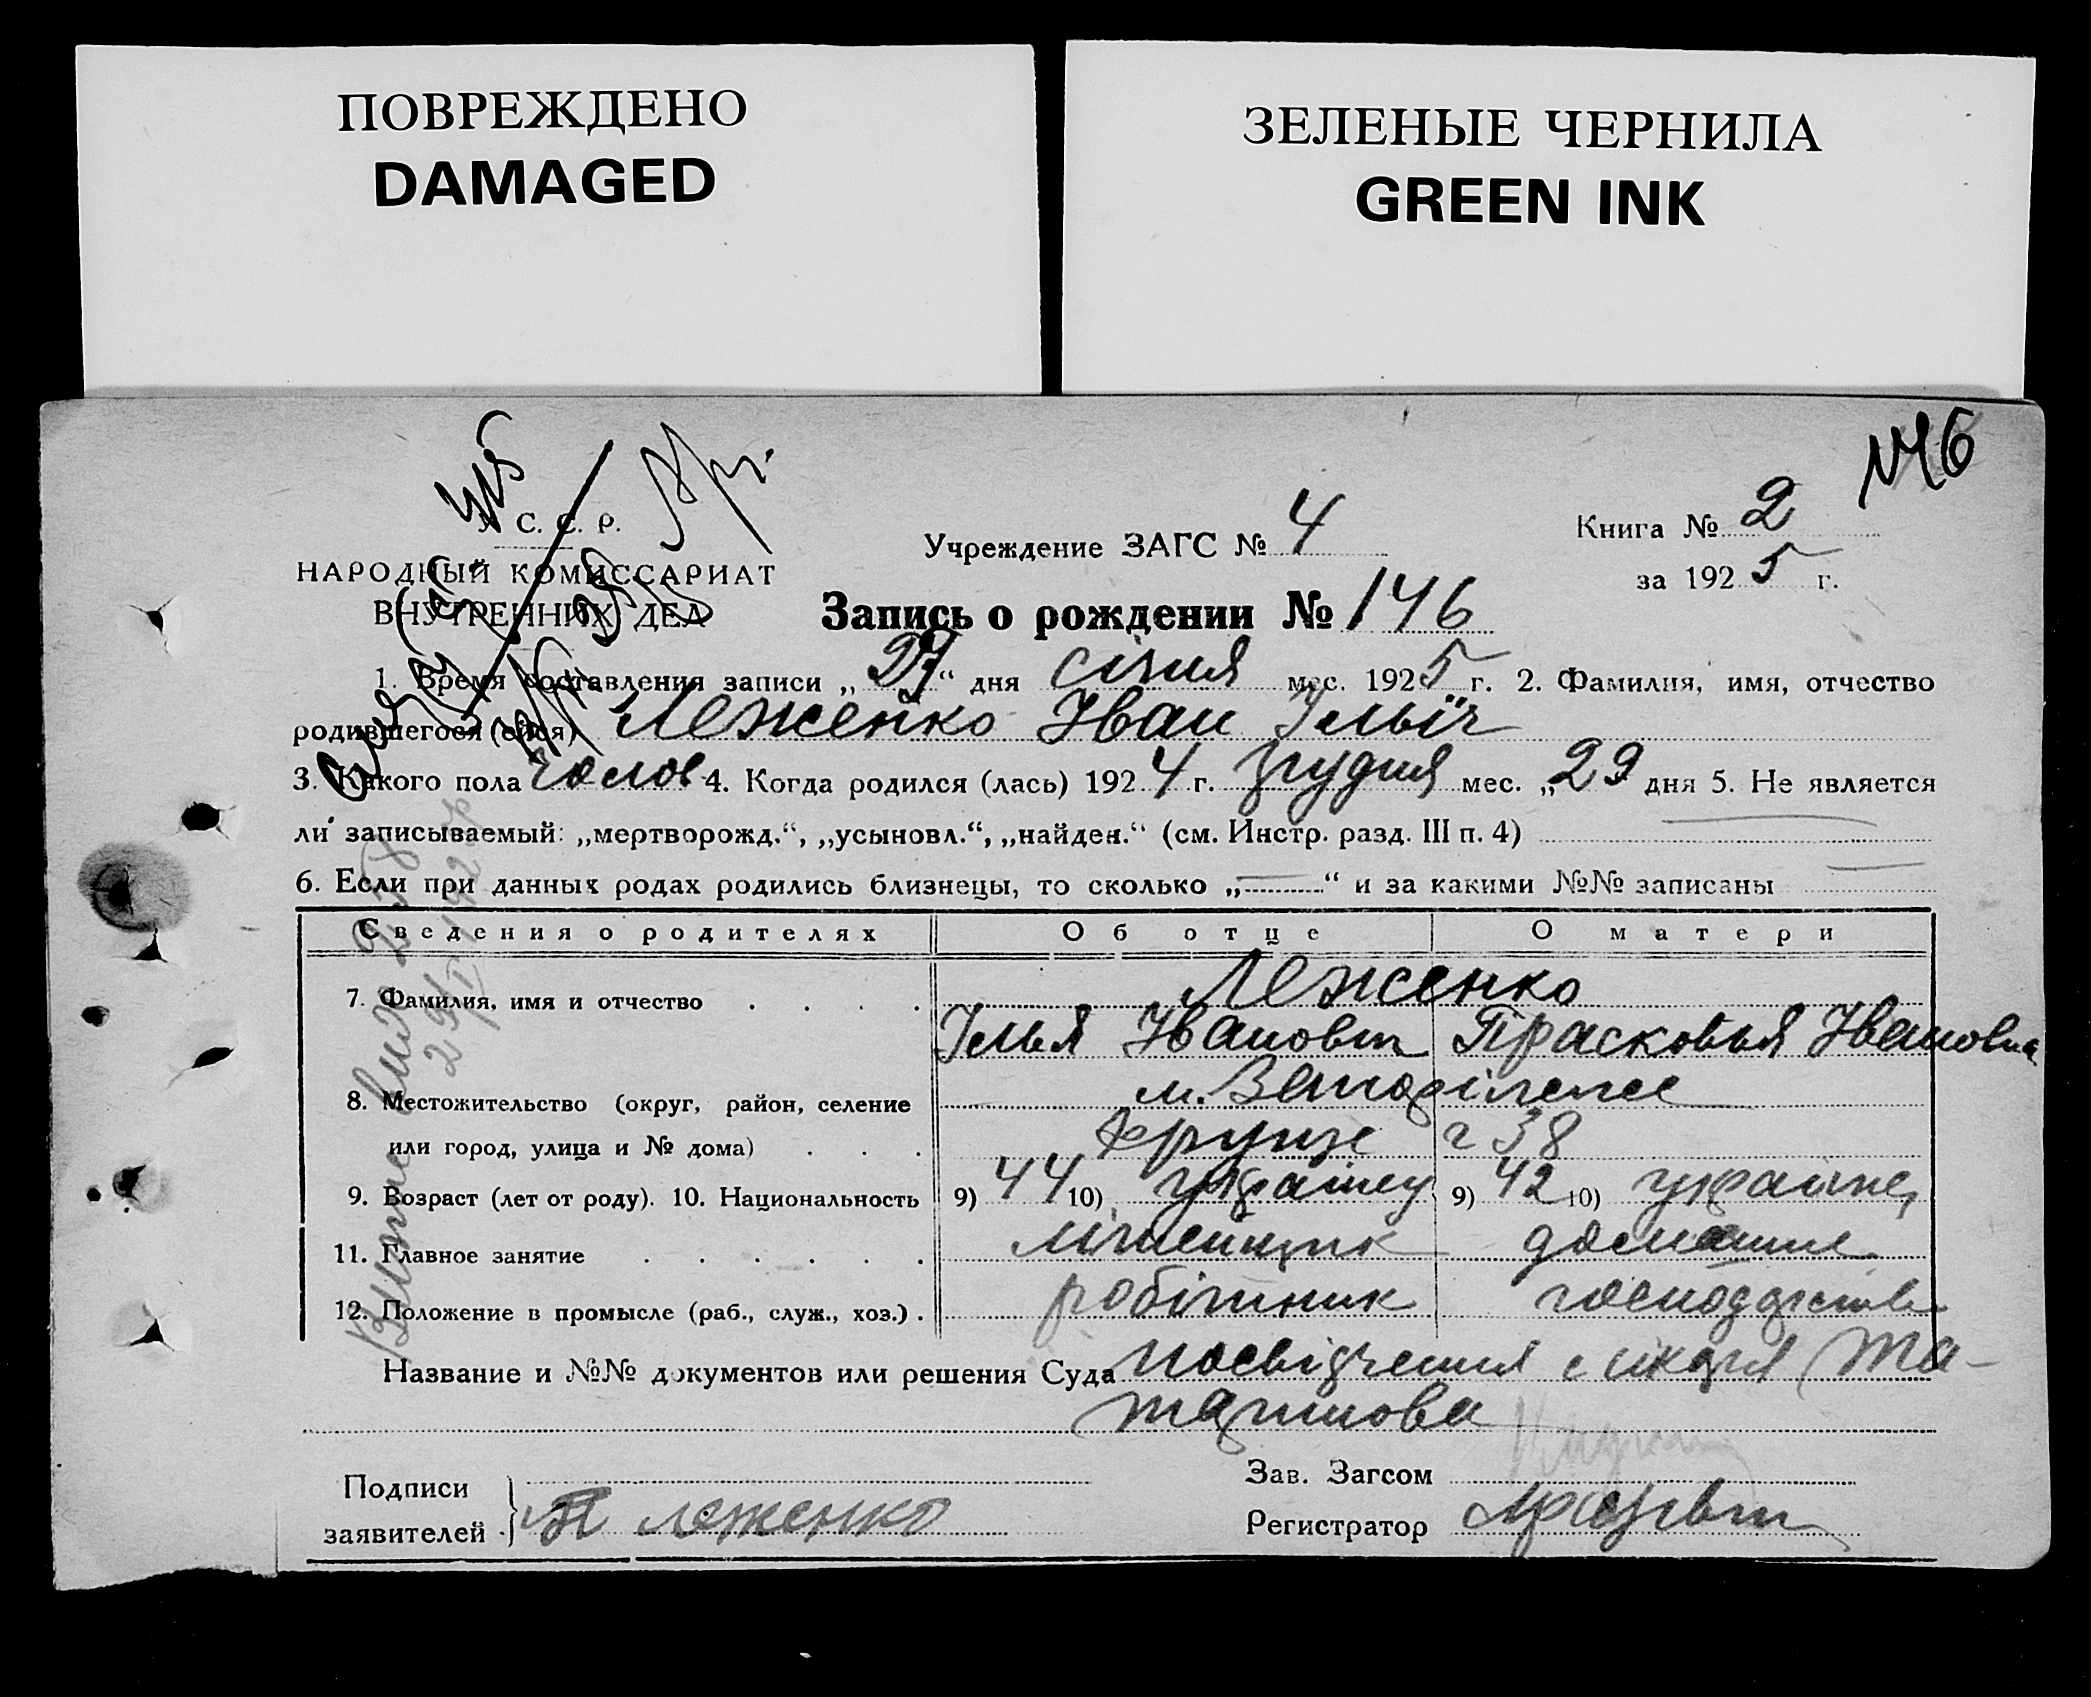 ПОВРЕЖДЕНО
DAMAGED
ЗЕЛЕНЫЕ ЧЕРНИЛА
GREEN INK
146
У. С. С. Р.
НАРОДНЫЙ КОМИССАРИАТ
ВНУТРЕННИХ ДЕЛ
Учреждение ЗАГС № 4
Книга № 2
за 1925 г.
Запись о рождении № 146
1. Время составления записи „27“ дня січня мес. 1925 г. 2. Фамилия, имя, отчество
родившегося (ейся) Леженко Іван Ільїч
3. Какого пола чолов 4. Когда родился (лась) 1924 г. грудня мес. „29 дня 5. Не является
ли записываемый: „мертворожд.“, „усыновл.“, „найден.“ (см. Инстр. разд. III п. 4)
6. Если при данных родах родились близнецы, то сколько „—“ и за какими №№ записаны —
Сведения о родителях Об отце О матери
7. Фамилия, имя и отчество . . . . Леженко
Ілья Іванович Прасковья Івановна
8. Местожительство (округ, район, селение
или город, улица и № дома) . . . Фрунзе 38
9. Возраст (лет от роду). 10. Национальность 9) 44 10) українец 9) 42 10) україне
11. Главное занятие . . . . . . домашне
12. Положение в промысле (раб., служ., хоз.) . робітник господарство
Название и №№ документов или решения Суда посвідчення
Подписи
заявителей П Леженко
Зав. Загсом
Регистратор